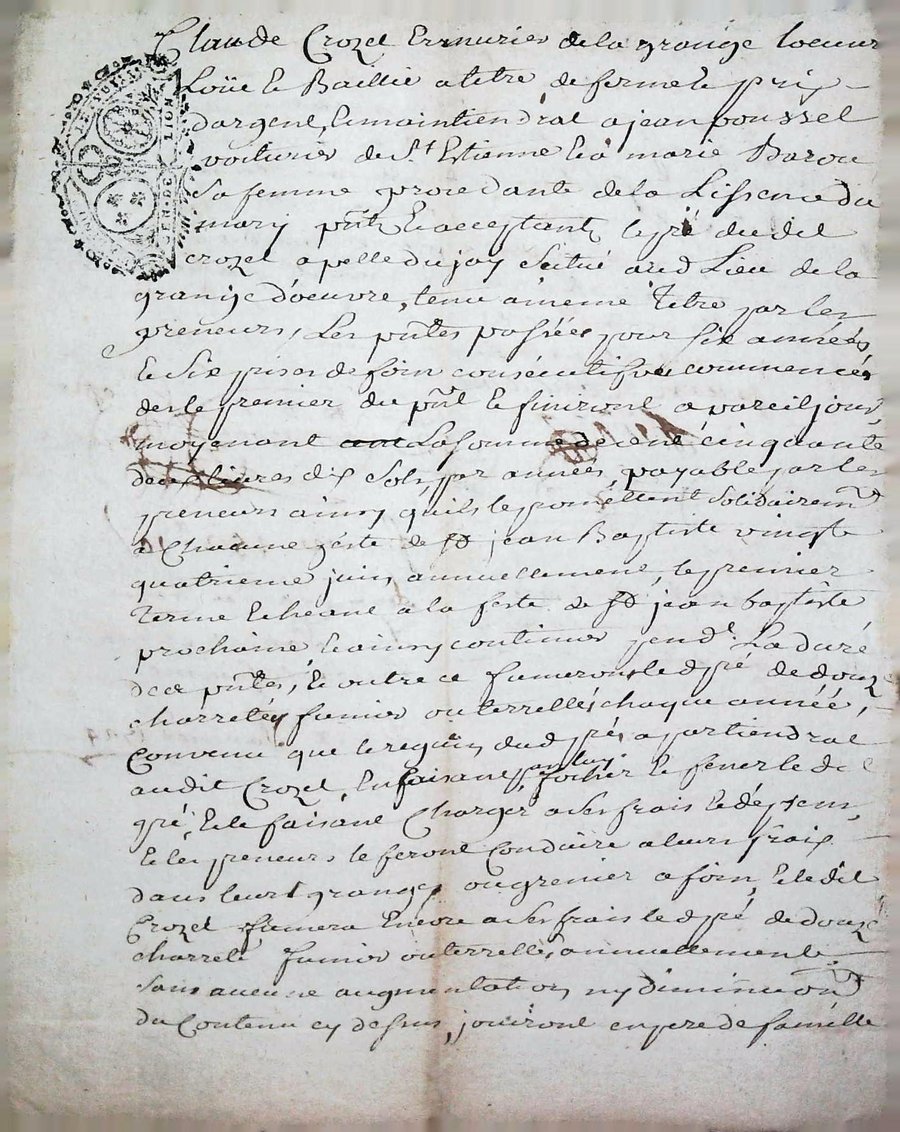 Claude Crozel Armurier de la grange loeuvre
Loüe et Baillie a titre de ferme et prix
dargent, et maintiendrat a jean roussel
voiturier de St. Estienne et a marie Barou
Sa femme procedante de la Lissence du
mary pnts et acceptants le pré dudit
crozel apellé dujay Scitué aud Lieu de la
grange d'oeuvre, tenu a meme titre par les
preneurs, Les pntes passées pour six années
et Six prises de foin consécutifve commencés
des le premier du pnt et finiront a pareil jour,
moyenant la somme de cent cinquante
deux livres dix Sols par années, payable par les
preneurs ainsy quils le promettent Solidairemt
a Chacune feste de St jean Baptiste vingte
quatrieme juin annuellement, le premier
terme Echeant a la feste de St jean baptiste
prochaine, et ainsy continuer pendt. La duré
des pntes, et outre ce fumeront led pré de douze
charretés fumier ou terrelles chaque année,
Convenu que le reguin dud pré apartiendrat
audit Crozel, En faisant par luy facher et fener le d
pré, et le faisant Charger a ses frais et dépens,
et les preneurs le feront Conduire a leurs frais
dans leurs granges ou grenier a foin, et le dit
Crozel fumera Encore a ses frais led pré de douze
charreté fumier ou terrelles, annuellement
sans aucune augmentation ny diminuon
du Contenu cy dessus, jouiront en pere de famille